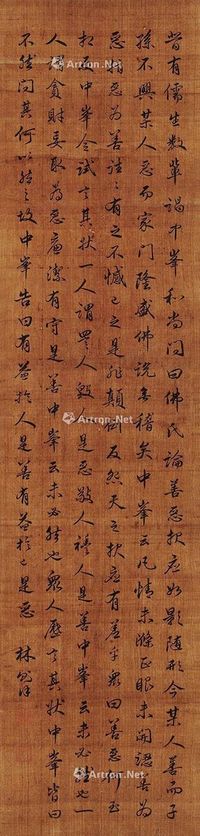 昔有儒生數輩謁中峯和尚問曰佛氏論善惡報應如影隨形今某人善而子
孫不興某人惡而家門隆盛佛說無稽矣中峯云凡情未滌正眼未開認善為
惡指惡為善往〻有之不憾己之是非顛倒反怨天之報應有差乎眾曰善惡何至
相反中峯令試言其狀一人謂詈人毆人是惡敬人禮人是善中峯云未必然也一
人謂貪財妄取為惡廉潔有守是善中峯云未必然也眾人歷言其狀中峯皆曰
不然問其何以然之故中峯告曰有益於人是善有益於己是惡 林則徐
Artron.Net
Artron.Net
Artron.Net